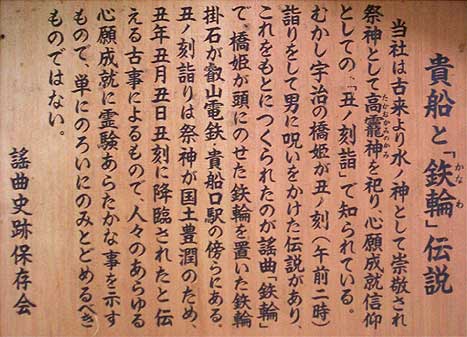 貴船と「鉄輪」伝説
かなわ
当社は古来より水ノ神として崇敬され
祭神として高龗神を祀り、心願成就信仰
たかおかみのかみ
としての「丑ノ刻詣」で知られている。
むかし宇治の橋姫が丑ノ刻（午前二時）
詣りをして男に呪いをかけた伝説があり、
これをもとにつくられたのが謡曲「鉄輪」
で、橋姫が頭にのせた鉄輪を置いた鉄輪
掛石が叡山電鉄・貴船口駅の傍らにある。
丑ノ刻詣りは祭神が国土豊潤のため、
丑年丑月丑日丑刻に降臨されたと伝
える古事によるもので、人々のあらゆる
心願成就に霊験あらたかな事を示す
もので、単にのろいにのみとどめるべき
ものではない。
謡曲史跡保存会